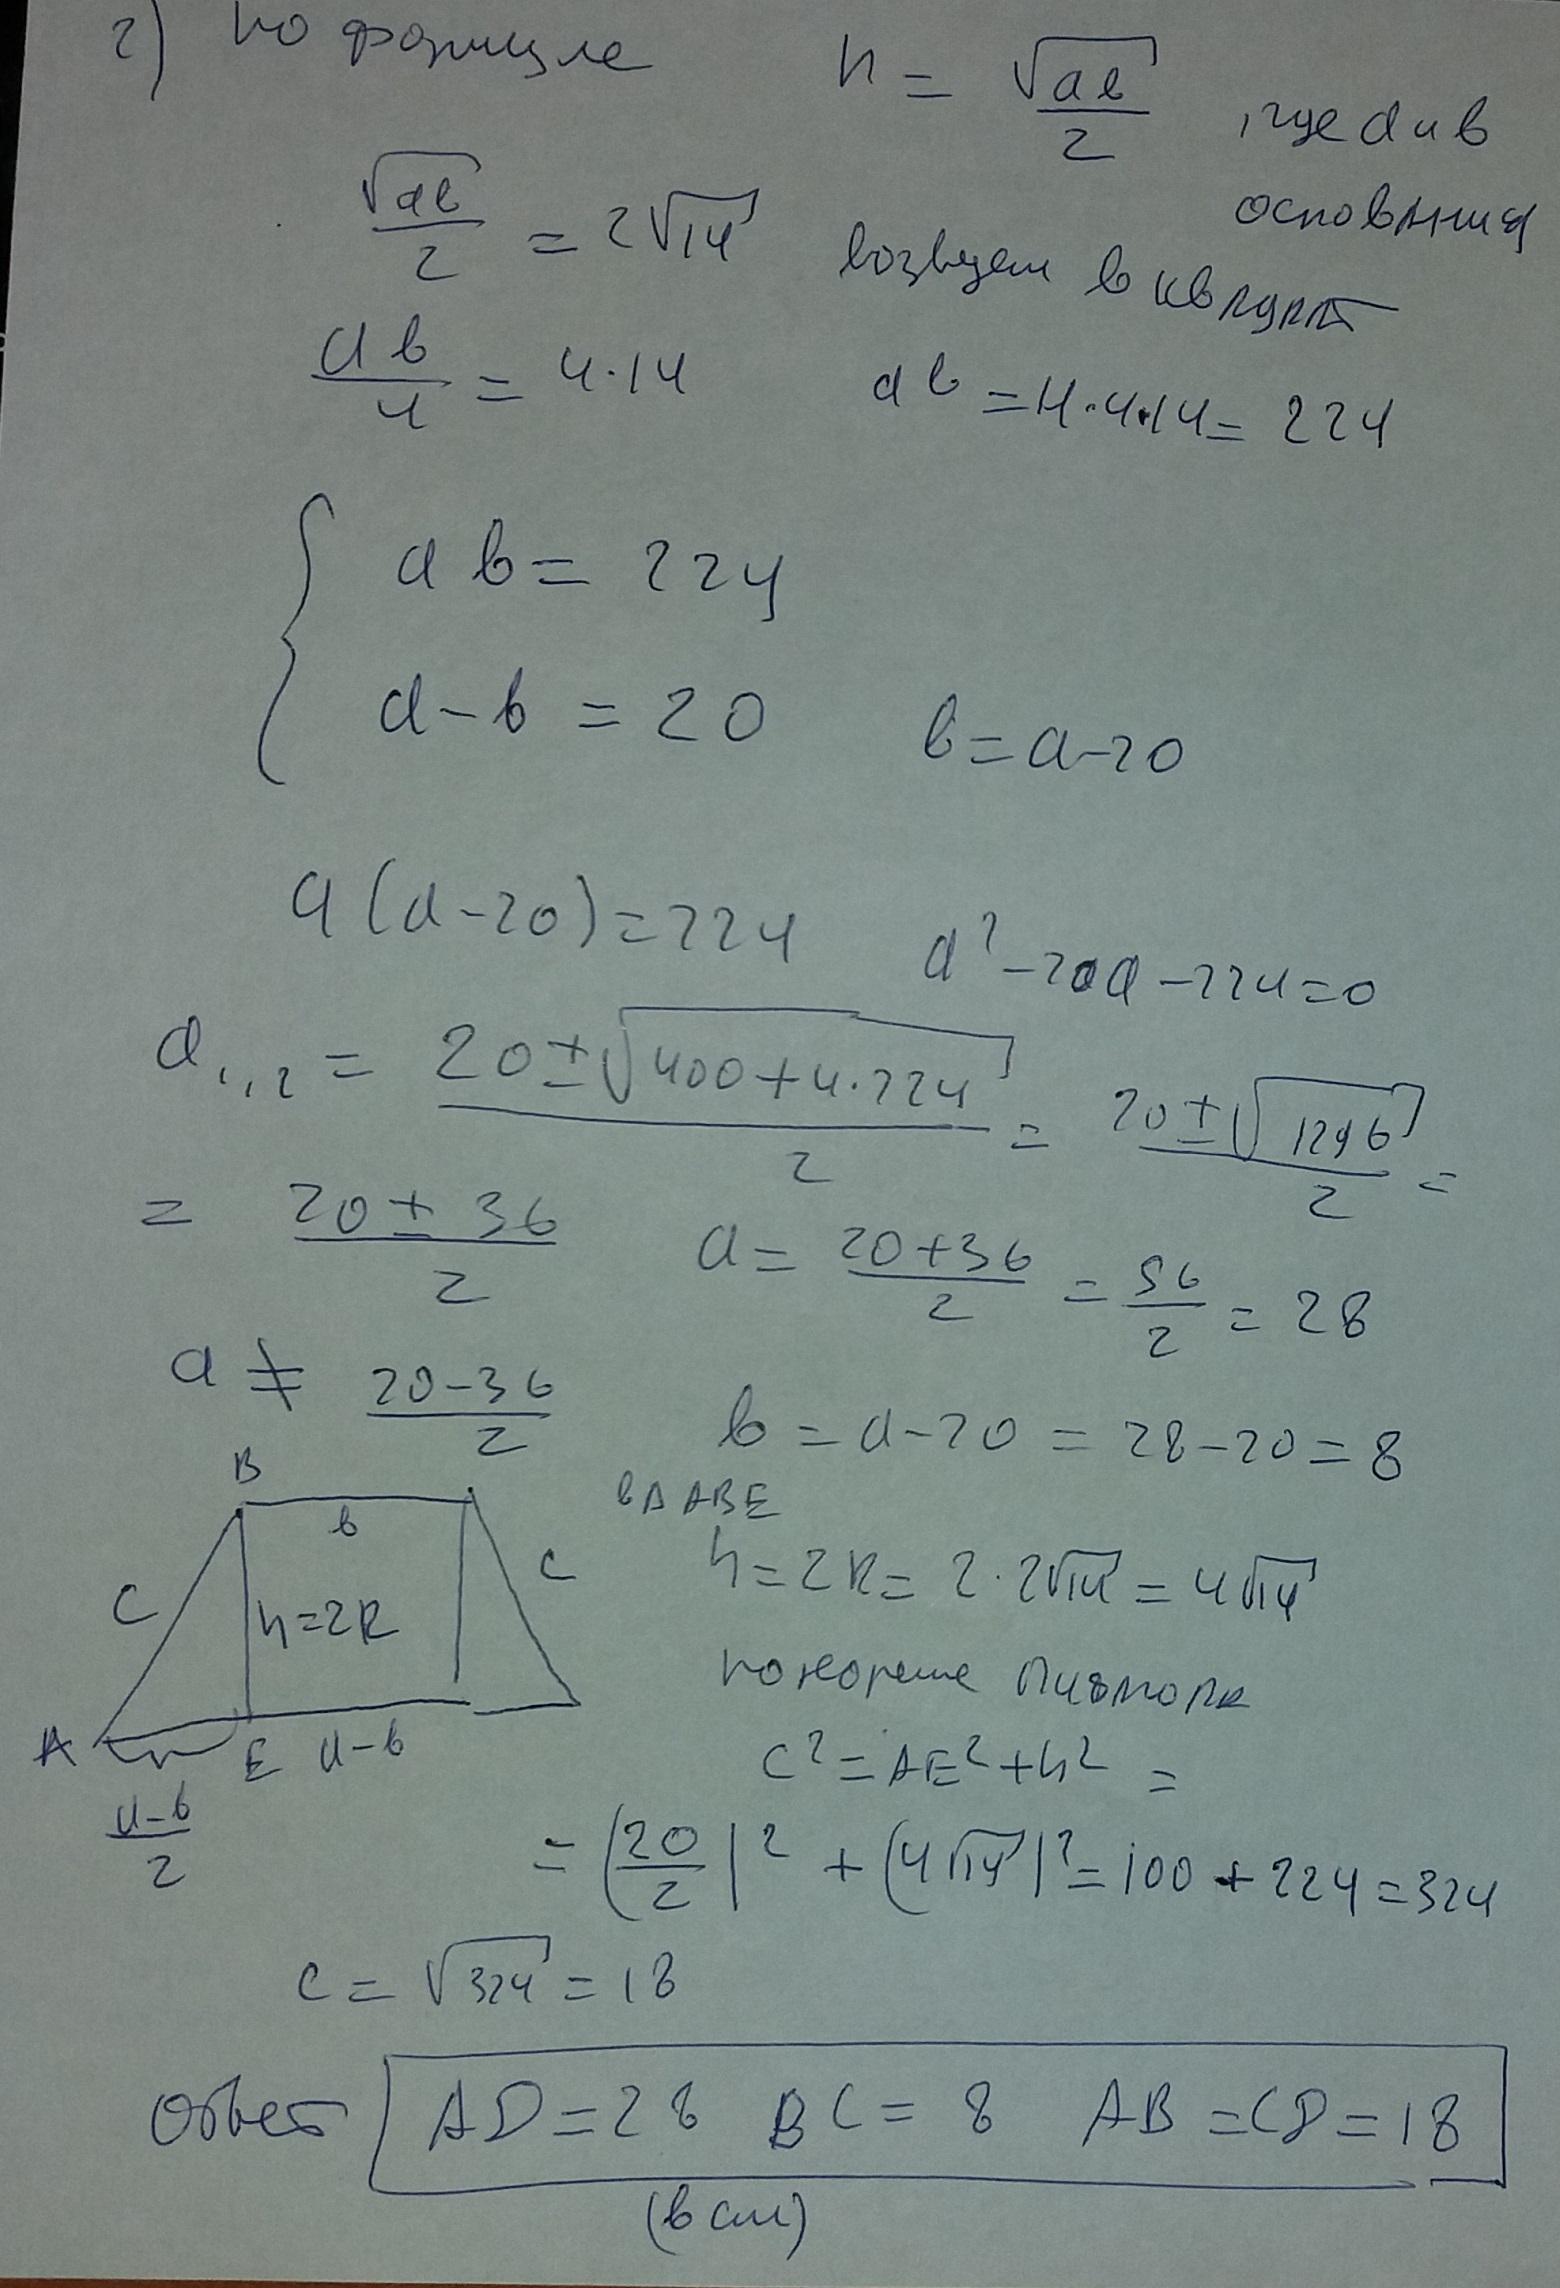 2) по формуле r = √ab / 2 , где a и b
основания
√ab / 2 = 2√14 возведем в квадрат
ab / 4 = 4·14 ab = 4·4·14 = 224
{ ab = 224
a-b = 20 b = a-20
a(a-20) = 224 a² - 20a - 224 = 0
a₁,₂ = 20 ± √400+4·224 / 2 = 20 ± √1296 / 2 =
= 20 ± 36 / 2 a = 20+36 / 2 = 56 / 2 = 28
a ≠ 20-36 / 2 b = a-20 = 28-20 = 8
B
b
в Δ ABE
C
C
h=2R
h = 2R = 2·2√14 = 4√14
по теореме Пифагора
A
E
a-b
a-b / 2
c² = AE² + h² =
= (20 / 2)² + (4√14)² = 100 + 224 = 324
c = √324 = 18
Ответ AD = 28 BC = 8 AB = CD = 18
(в см)